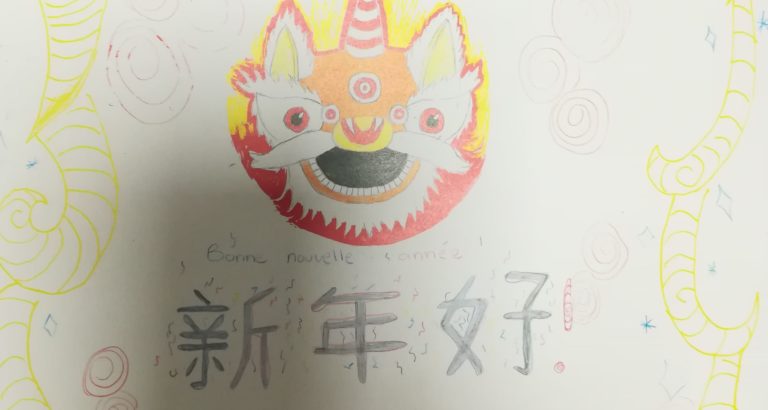 Bonne nouvelle année
新年好!